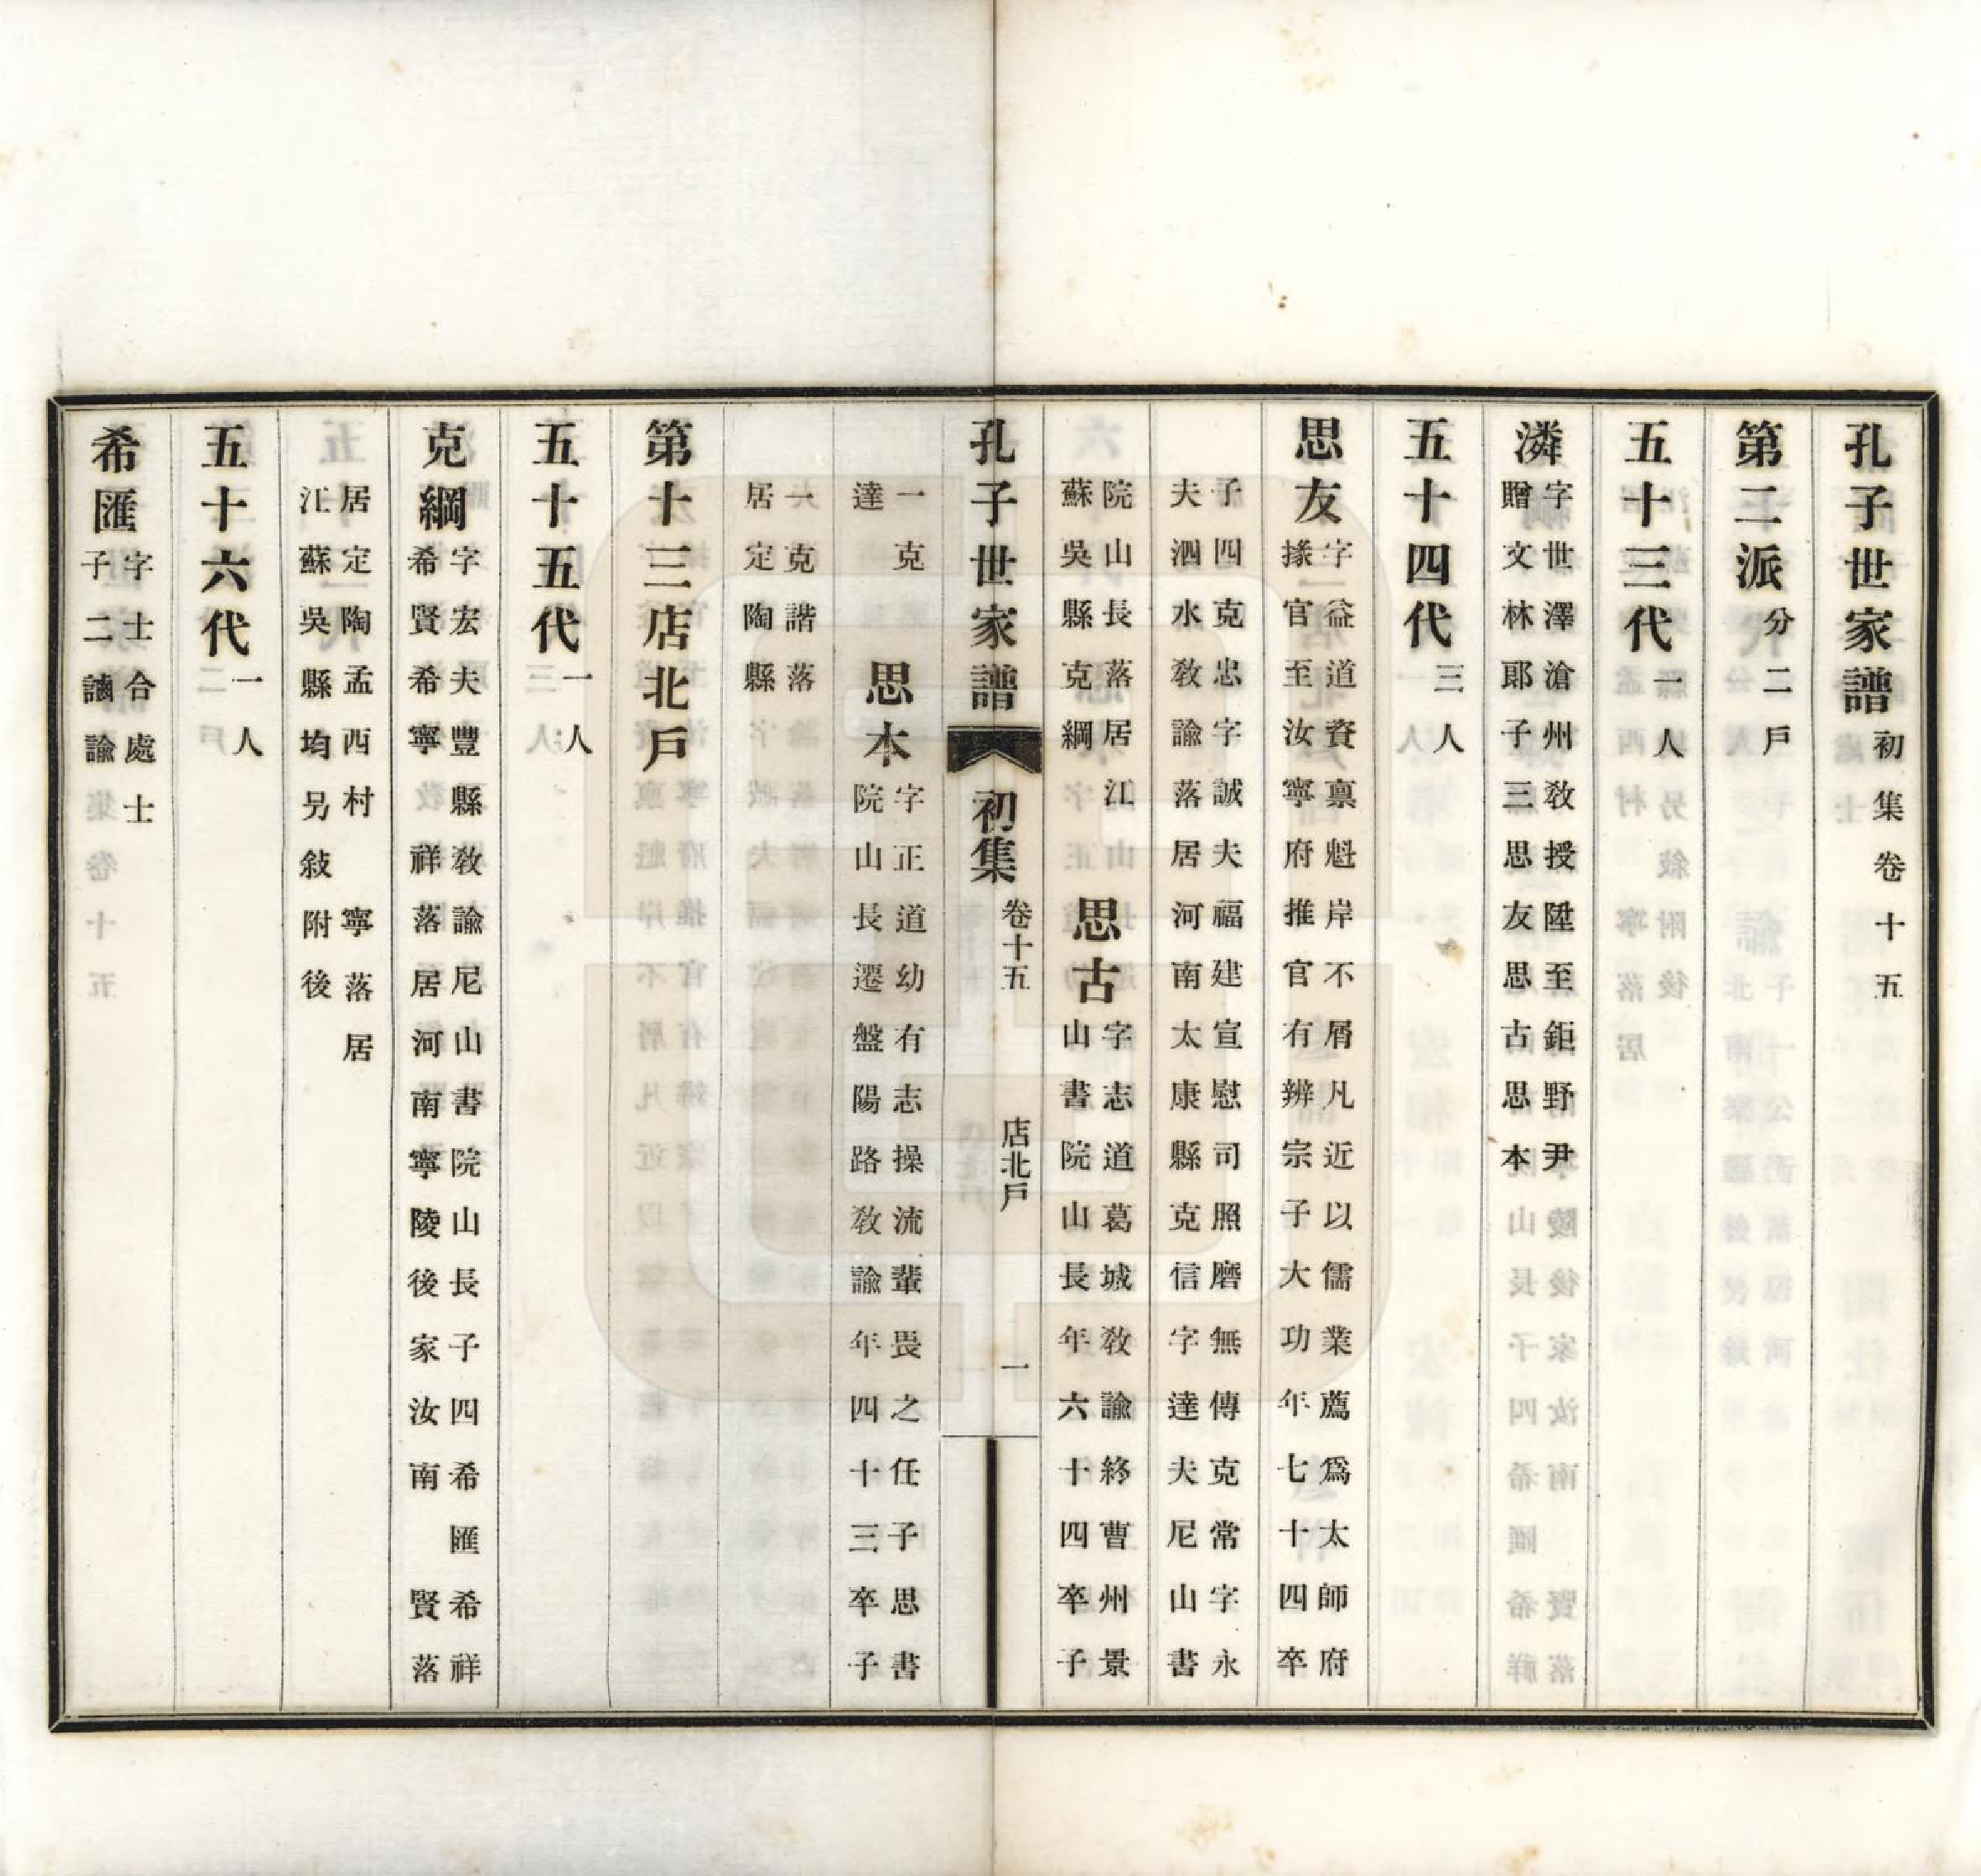 孔子世家譜初集卷十五
第二派分二戶
五十三代一人
潾字世澤滄州教授陞至鉅野尹
贈文林郎子三思友思古思本
五十四代三人
思友字益道資禀魁岸不屑凡近以儒業薦爲太師府
掾官至汝寧府推官有辨宗子大功年七十四卒
子四克忠字誠夫福建宣慰司照磨無傳克常字永
夫泗水教諭落居河南太康縣克信字達夫尼山書
院山長落居江
蘇吳縣克綱
思古字志道葛城教諭終曹州景
山書院山長年六十四卒子
孔子世家譜 初集 卷十五 店北戶 一
一克
達
思本字正道幼有志操流輩畏之任子思書
院山長遷盤陽路教諭年四十三卒子
一克諧落
居定陶縣
第十三店北戶
五十五代一人
克綱字宏夫豐縣教諭尼山書院山長子四希匯希祥
希賢希寧 祥落居河南寧陵後家汝南 賢落
居定陶孟西村 寧落居
江蘇吳縣均另敍附後
五十六代一人
希匯字士合處士
子二讁諭